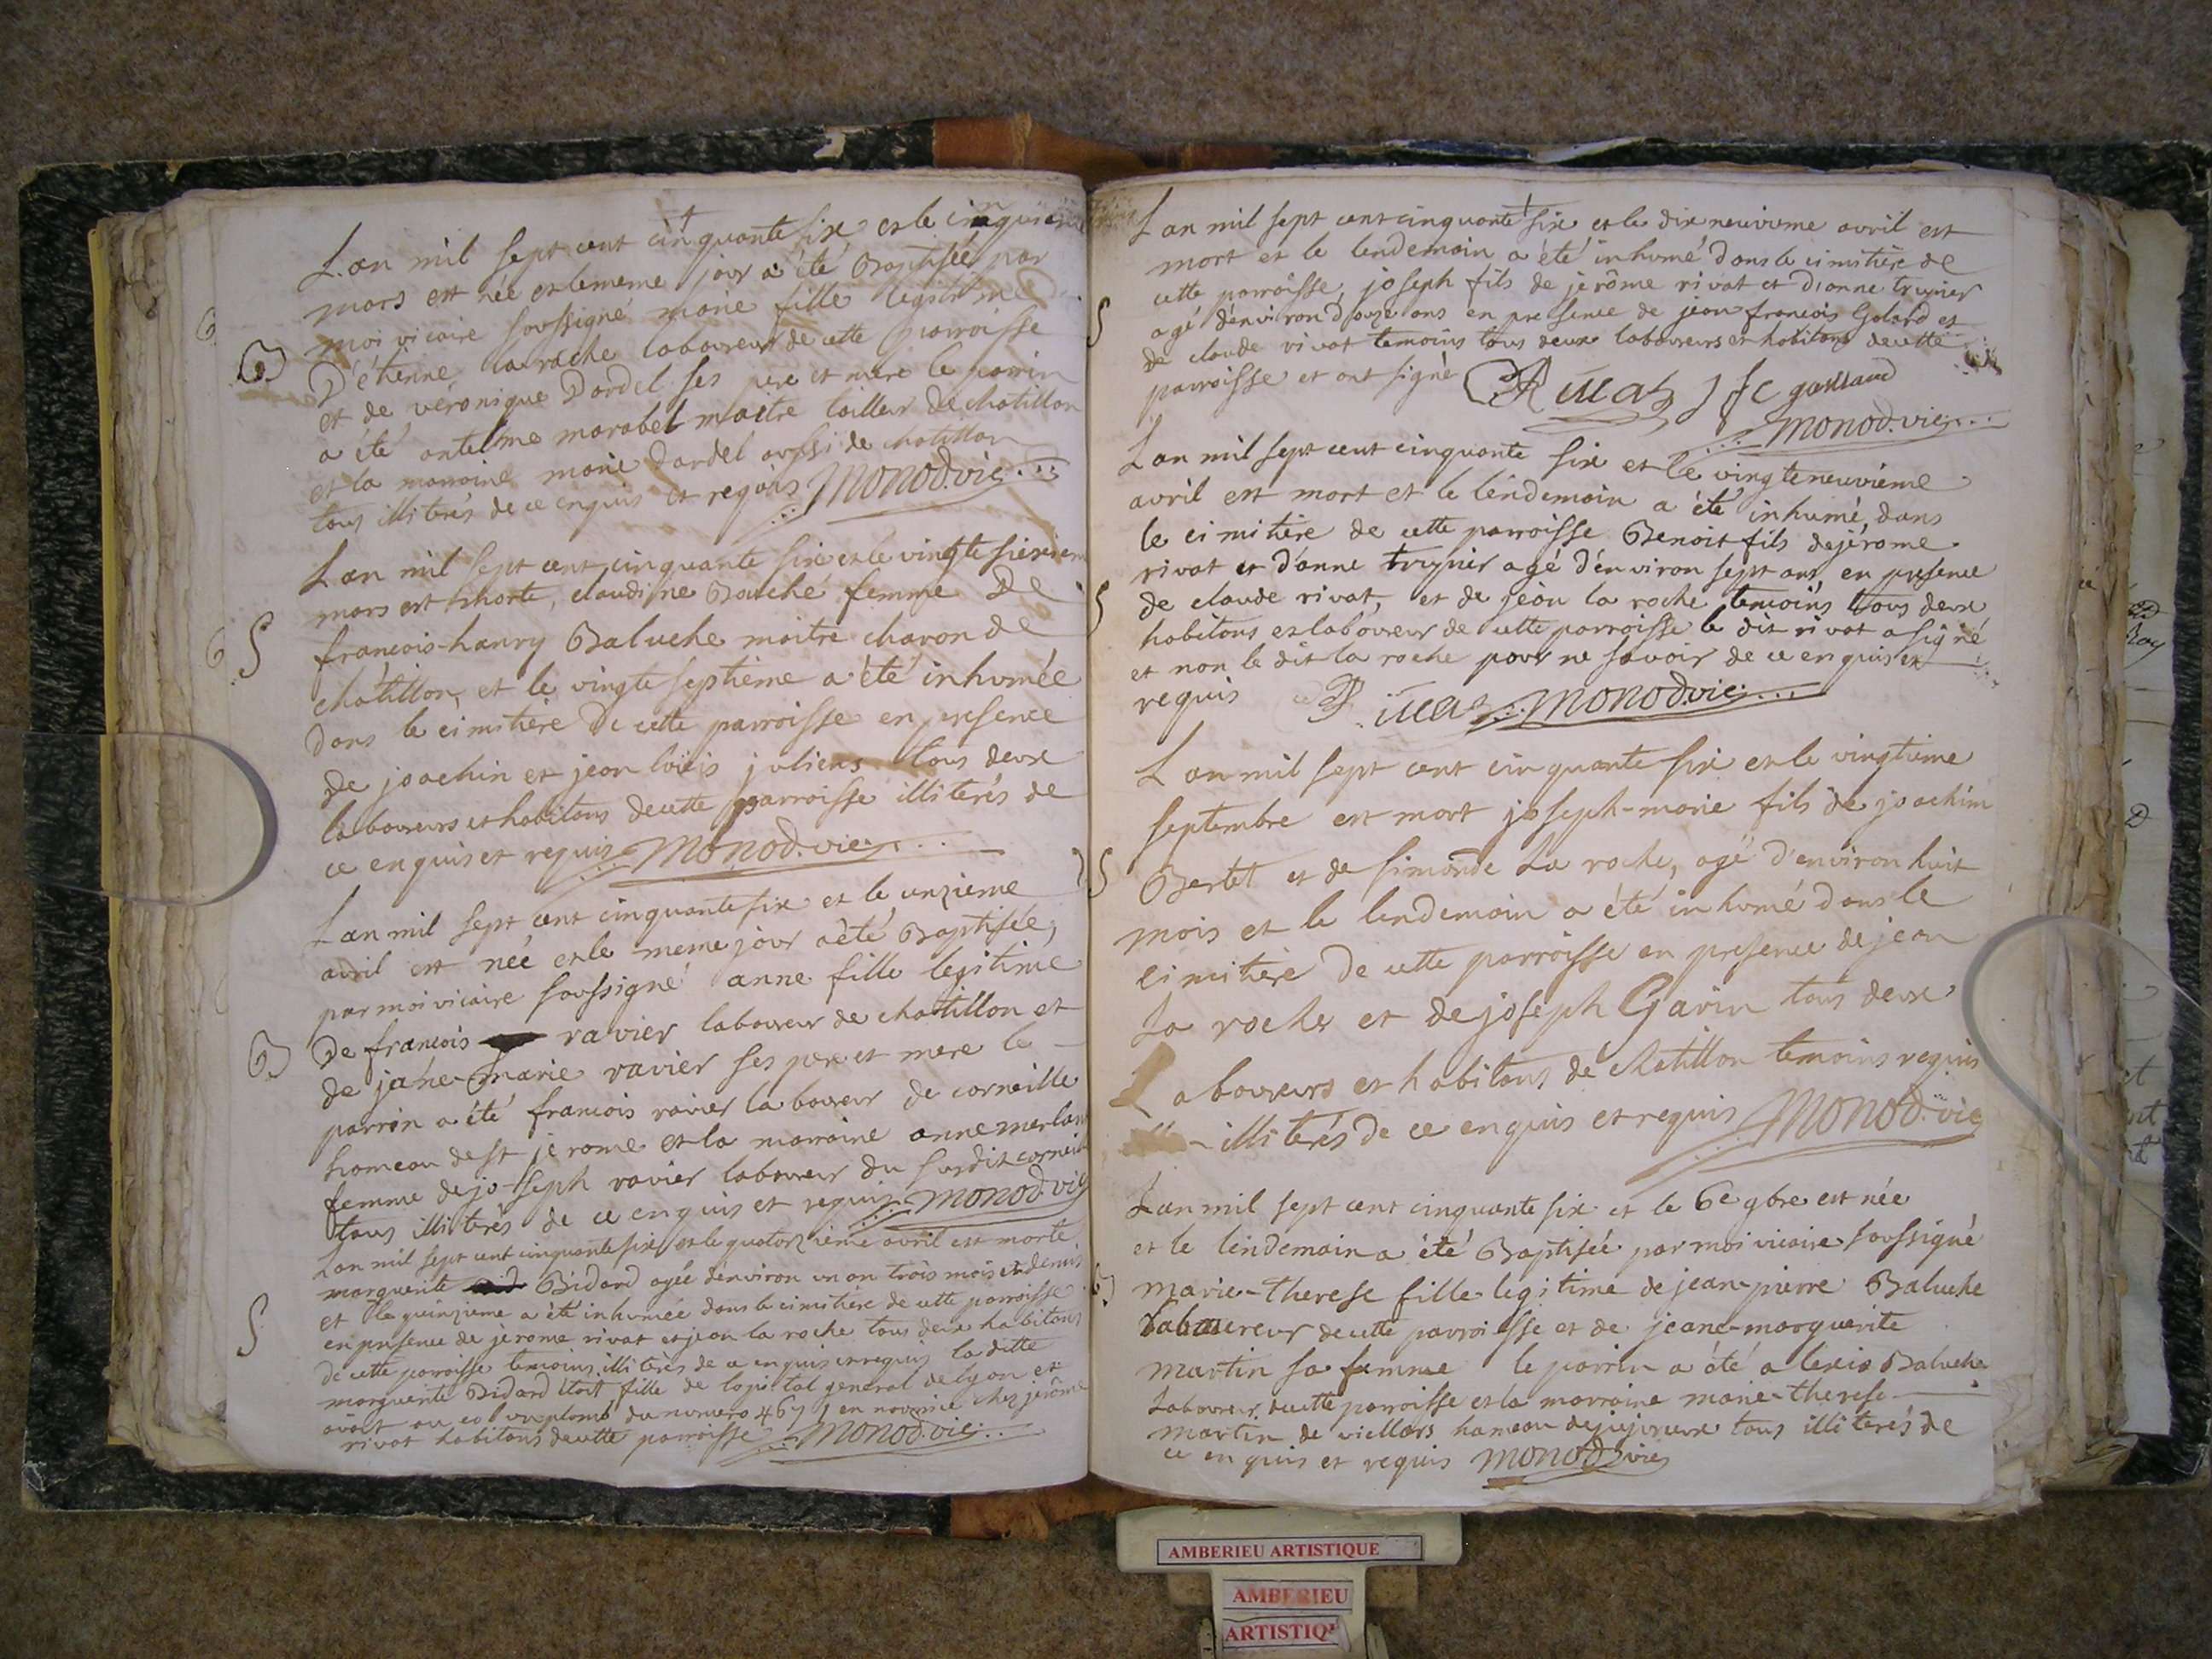 L'an mil sept cent cinquante six et le cinquième
mars est née et le meme jour a été Baptisée par
moi vicaire soussigné marie fille legitime
B
D'étienne la roche laboureur de cette parroisse
et de véronique Dardel ses pere et mere le parrin
a été antelme marabel maitre tailleur de chatillon
et la marraine marie dardel aussi de chatillon
tous illiterés de ce enquis et requis Monod. vic.
L'an mil sept cent cinquante six et le vingte sixiem
mars est morte, claudine Bouché femme De
S
francois-hanry Baluche maitre charon de
chatillon, et le vingte septième a été inhumée
dans le cimitière de cette parroisse en presence
de joachin et jean loüis juliens tous deux
laboureurs et habitans de cette parroisse illiterés de
ce enquis et requis Monod. vic.
L'an mil sept cent cinquante six et le unzieme
avril est née et le meme jour a été Baptisée,
par moi vicaire soussigné anne fille legitime
B
De francois ravier laboureur de chatillon et
de jane-marie ravier ses pere et mere le
parrin a été francois ravier laboureur de corneille
hameau de st jerome et la marraine anne merlan
femme de jo-seph ravier laboureur du susdit corneil
tous illiterés de ce enquis et requis Monod. vic
L'an mil sept cent cinquante six et le quatorzieme avril est morte
marguerite Bidard agée d'environ un an trois mois et demis
et le quinzieme a été inhumée dans le cimitière de cette parroisse
S
en presence de jerome rivat et jean la roche tous deux habitans
de cette parroisse temoins illiterés de ce enquis et requis la ditte
marguerite Bidard etoit fille de l'opital general de lyon et
avoit au col un plomb du numero 467, en nourrice chez jerôme
rivat habitans de cette parroisse Monod. vic.
L'an mil sept cent cinquante six et le dix neuvieme avril est
mort et le lendemain a été inhumé dans le cimitière de
cette parroisse, joseph fils de jerôme rivat et d'anne trunier
S
agé d'environ douze ans en presence de jean francois Golard et
de claude rivat temoins tous deux laboureurs et habitans de cette
parroisse et ont signé C Rivat J fc gaillard
Monod. vic.
L'an mil sept cent cinquante six et le vingte neuvième
avril est mort et le lendemain a été inhumé, dans
le cimitière de cette parroisse Benoit fils de jérome
rivat et d'anne trunier agé d'environ sept ans en presence
S
de claude rivat, et de jean la roche temoins tous deux
habitans et laboureur de cette parroisse le dit rivat a signé
et non le dit la roche pour ne savoir de ce enquis et
requis Rivat Monod. vic.
L'an mil sept cent cinquante six et le vingtieme
septembre est mort joseph-marie fils de joachim
S
Bertet et de simonde La roche, agé d'environ huit
mois et le lendemain a été inhumé dans le
cimitière de cette parroisse en presence de jean
La roche et de joseph Garin tous deux
Laboureurs et habitans de chatillon temoins requis
illiterés de ce enquis et requis Monod. vic
L'an mil sept cent cinquante six et le 6e 9bre est née
et le lendemain a été Baptisée par moi vicaire soussigné
B
marie-therese fille legitime de jean-pierre Baluche
Laboureur de cette parroisse et de jeane-marguerite
martin sa femme le parrin a été alexis Baluche
Laboureur de cette parroisse et la marraine marie-therese
martin de viellars hameau de jujurieux tous illiterés de
ce enquis et requis Monod vic
AMBERIEU ARTISTIQUE
AMBERIEU
ARTISTIQ